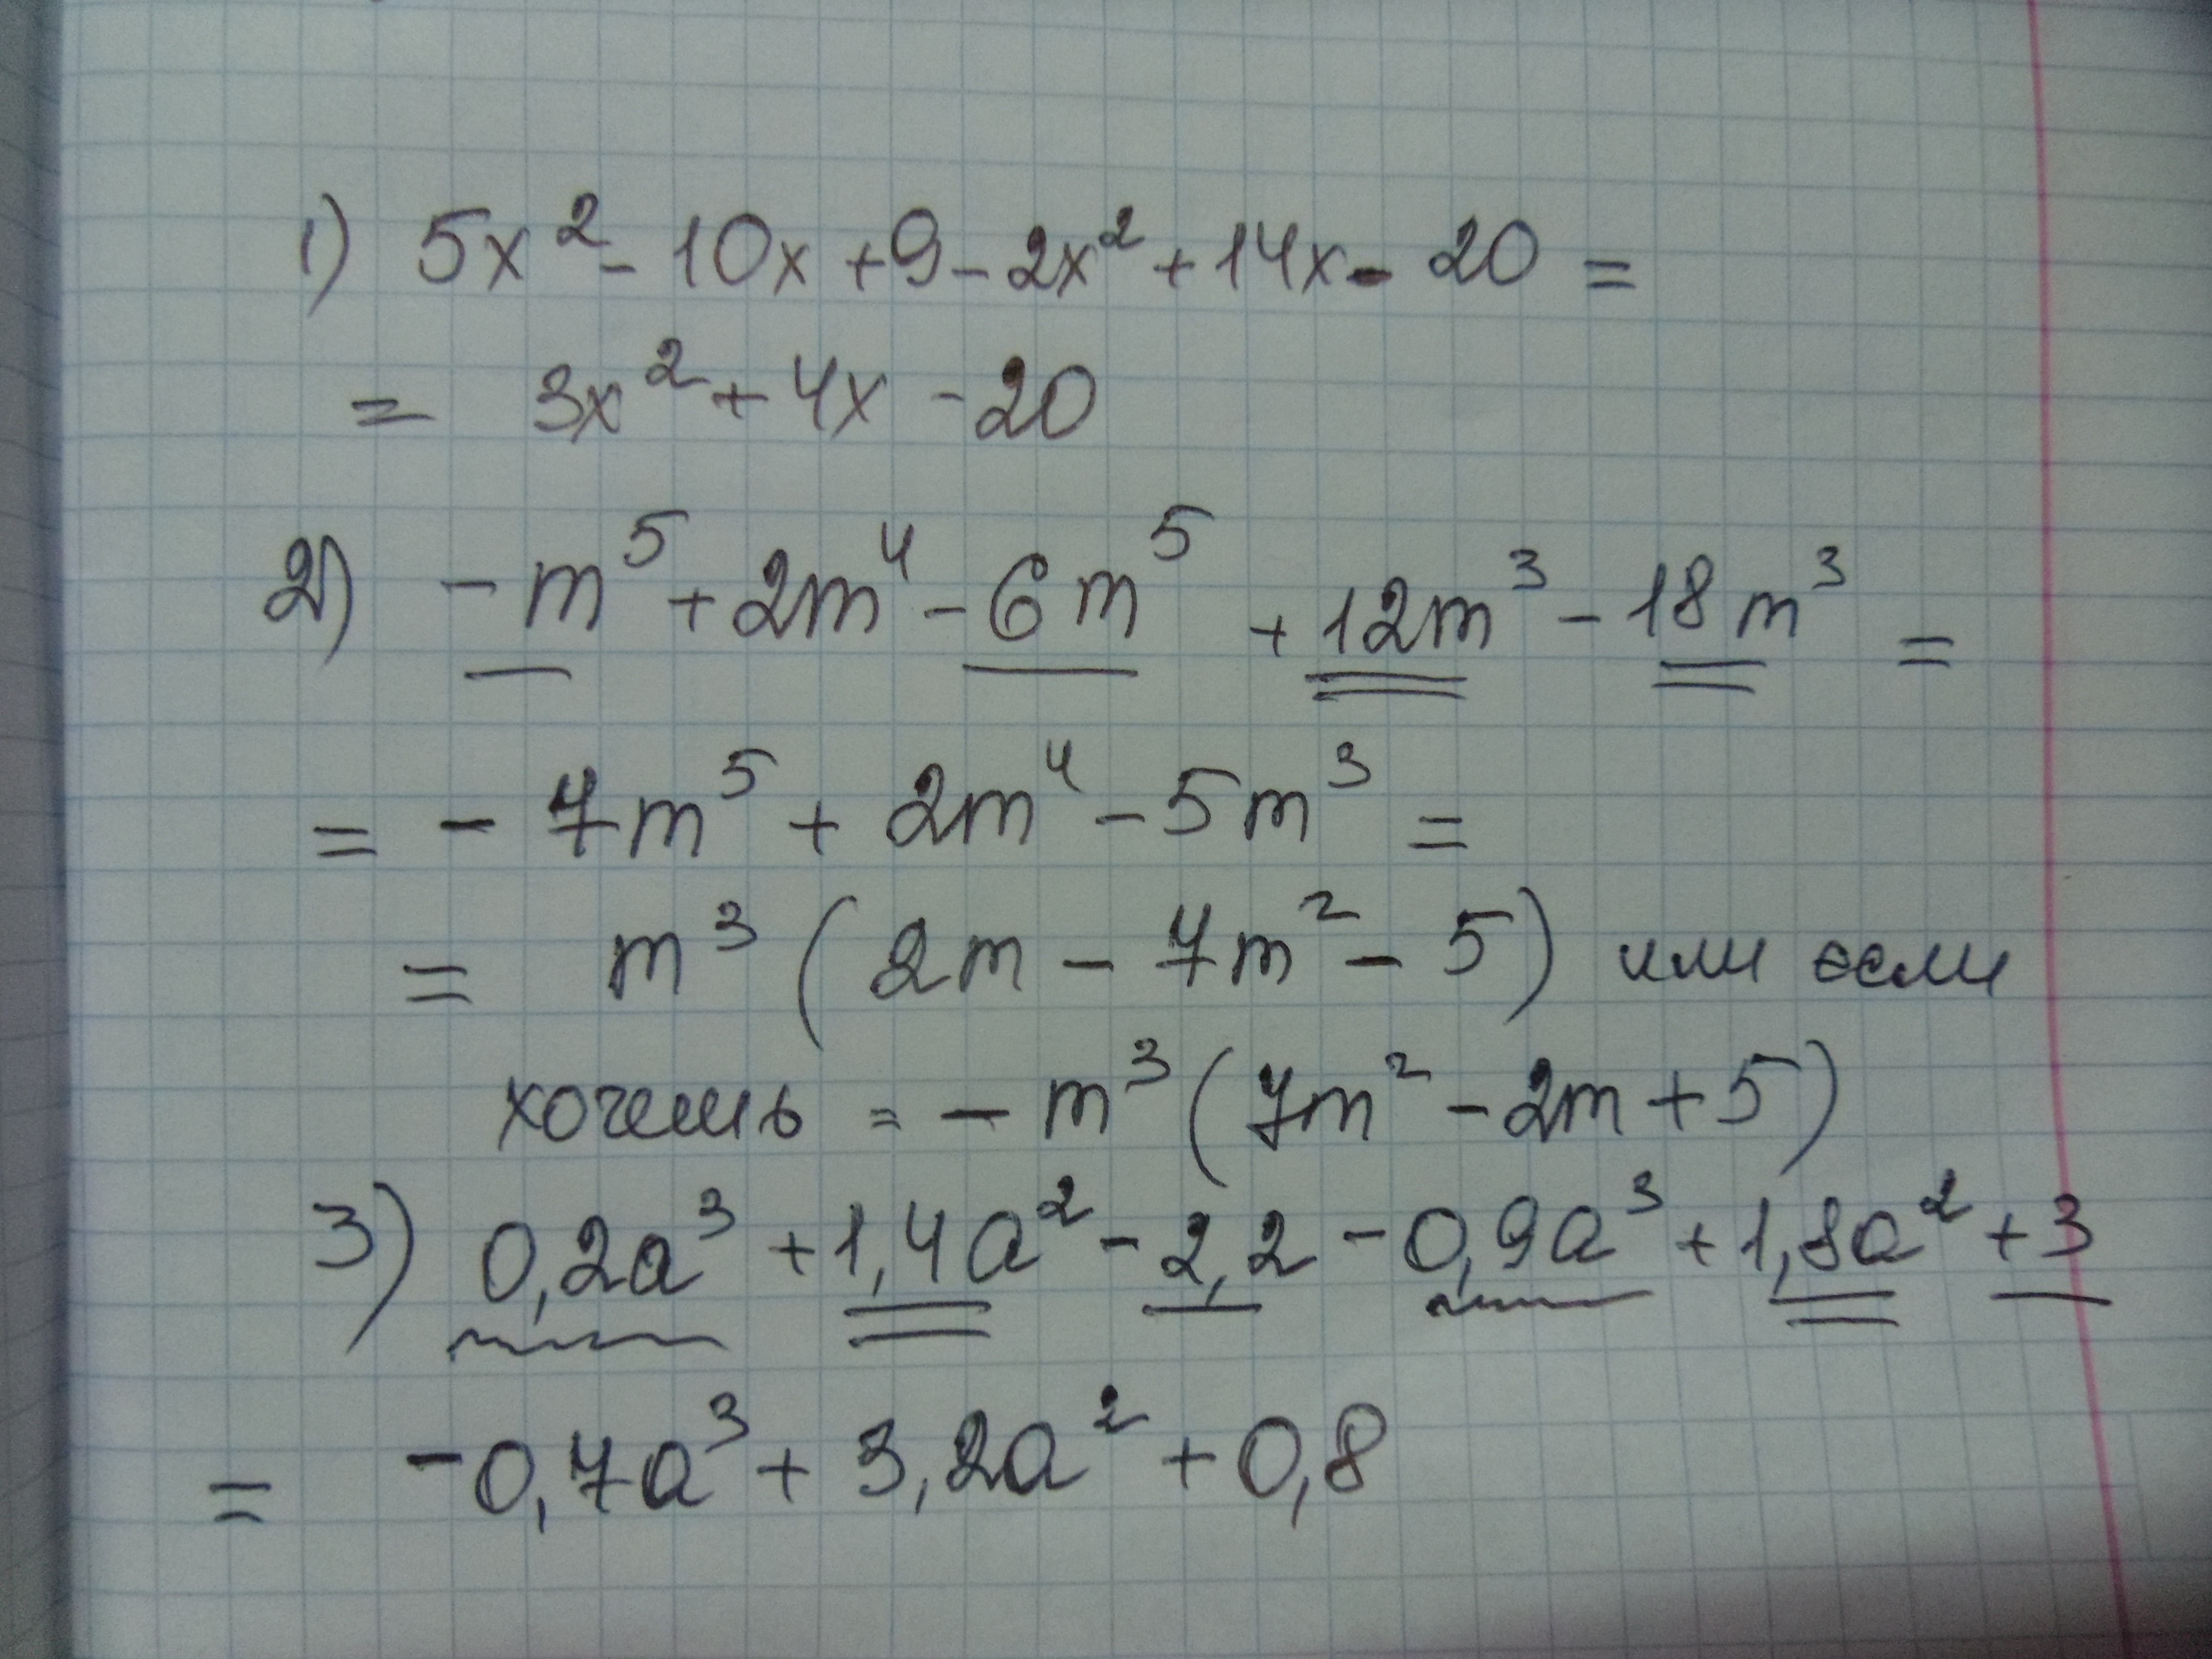 1) 5x² - 10x + 9 - 2x² + 14x - 20 =
= 3x² + 4x - 20
2) - m⁵ + 2m⁴ - 6m⁵ + 12m³ - 18m³ =
= - 7m⁵ + 2m⁴ - 5m³ =
= m³ (2m - 7m² - 5) или если
хочешь = - m³ (7m² - 2m + 5)
3) 0,2a³ + 1,4a² - 2,2 - 0,9a³ + 1,8a² + 3
= - 0,7a³ + 3,2a² + 0,8